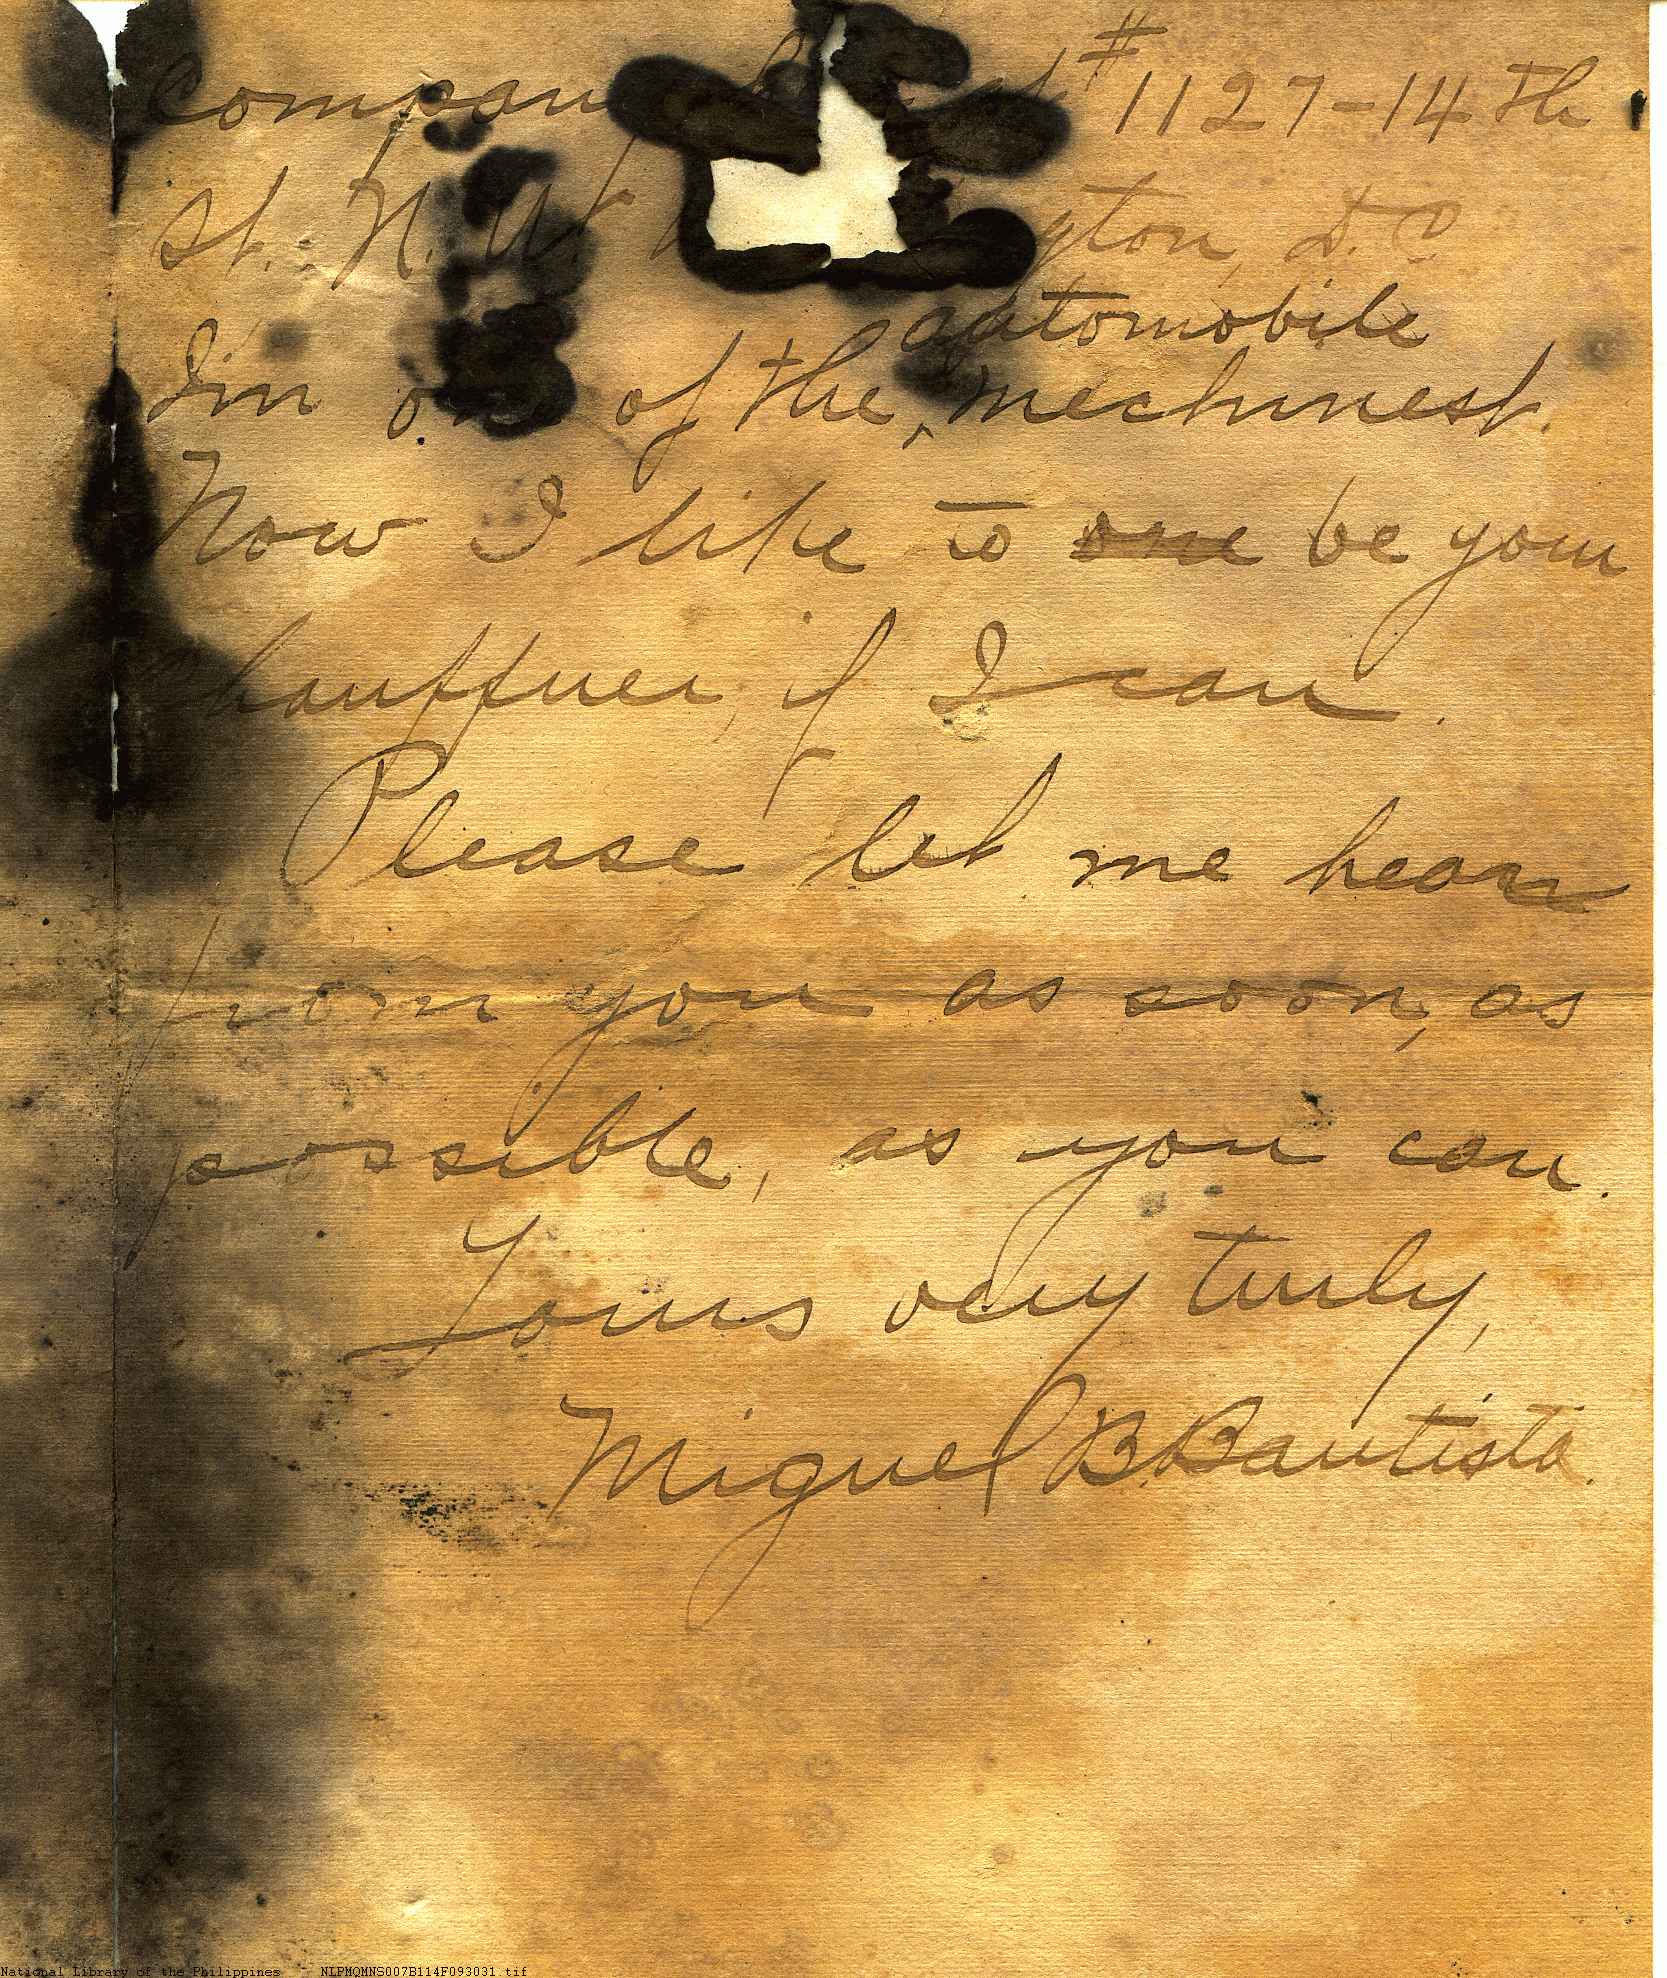 company at #1127-14th
St. N.W. Washington, D.C.
automobile
I'm one of the ^ mechinest.
Now I like to one be your
chauffuer, if I can.
Please let me hear
from you as soon, as
possible, as you can.
Yours very turly,
Miguel B. Bautista.
National Library of the Philippines NLPMQMNS007B114F093031.tif